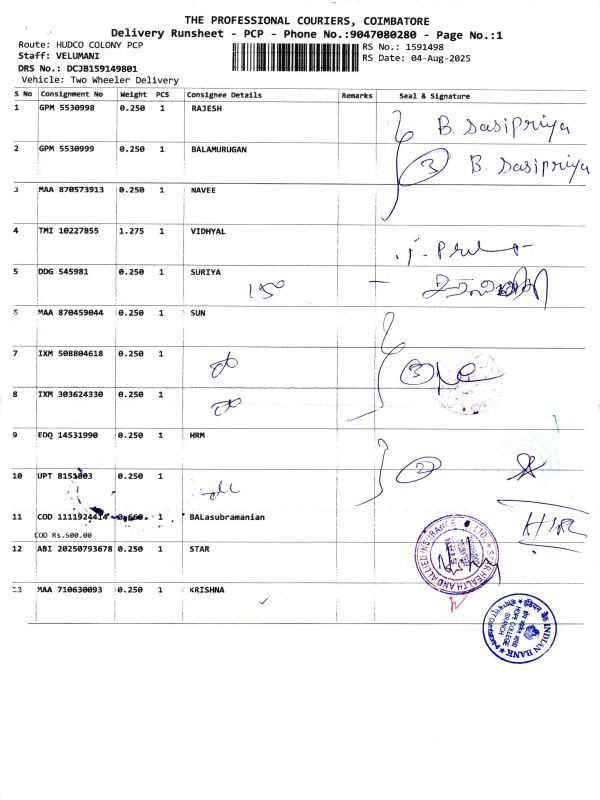 THE PROFESSIONAL COURIERS, COIMBATORE
Delivery Runsheet - PCP - Phone No.:9047080280 - Page No.:1
Route: HUDCO COLONY PCP
RS No.: 1591498
Staff: VELUMANI
RS Date: 04-Aug-2025
DRS No.: DCJB159149801
Vehicle: Two Wheeler Delivery
S No Consignment No Weight PCS Consignee Details Remarks Seal & Signature
1 GPM 5530998 0.250 1 RAJESH B. Sasipriya
2 GPM 5530999 0.250 1 BALAMURUGAN 3 B. Sasipriya
3 MAA 870573913 0.250 1 NAVEE
4 TMI 10227855 1.275 1 VIDHYAL
5 DDG 545981 0.250 1 SURIYA
150
6 MAA 870459044 0.250 1 SUN
7 IXM 508804618 0.250 1
3
8 IXM 303624330 0.250 1
9 EDQ 14531990 0.250 1 HRM
2
10 UPT 8151803 0.250 1
11 COD 1111924414 0.660 1 BALasubramanian
COD Rs.500.00
12 ABI 20250793678 0.250 1 STAR
STAR HEALTH AND ALLIED INSURANCE LTD.
13 MAA 710630093 0.250 1 KRISHNA
INDIAN BANK
HOPE COLLEGE
BRANCH